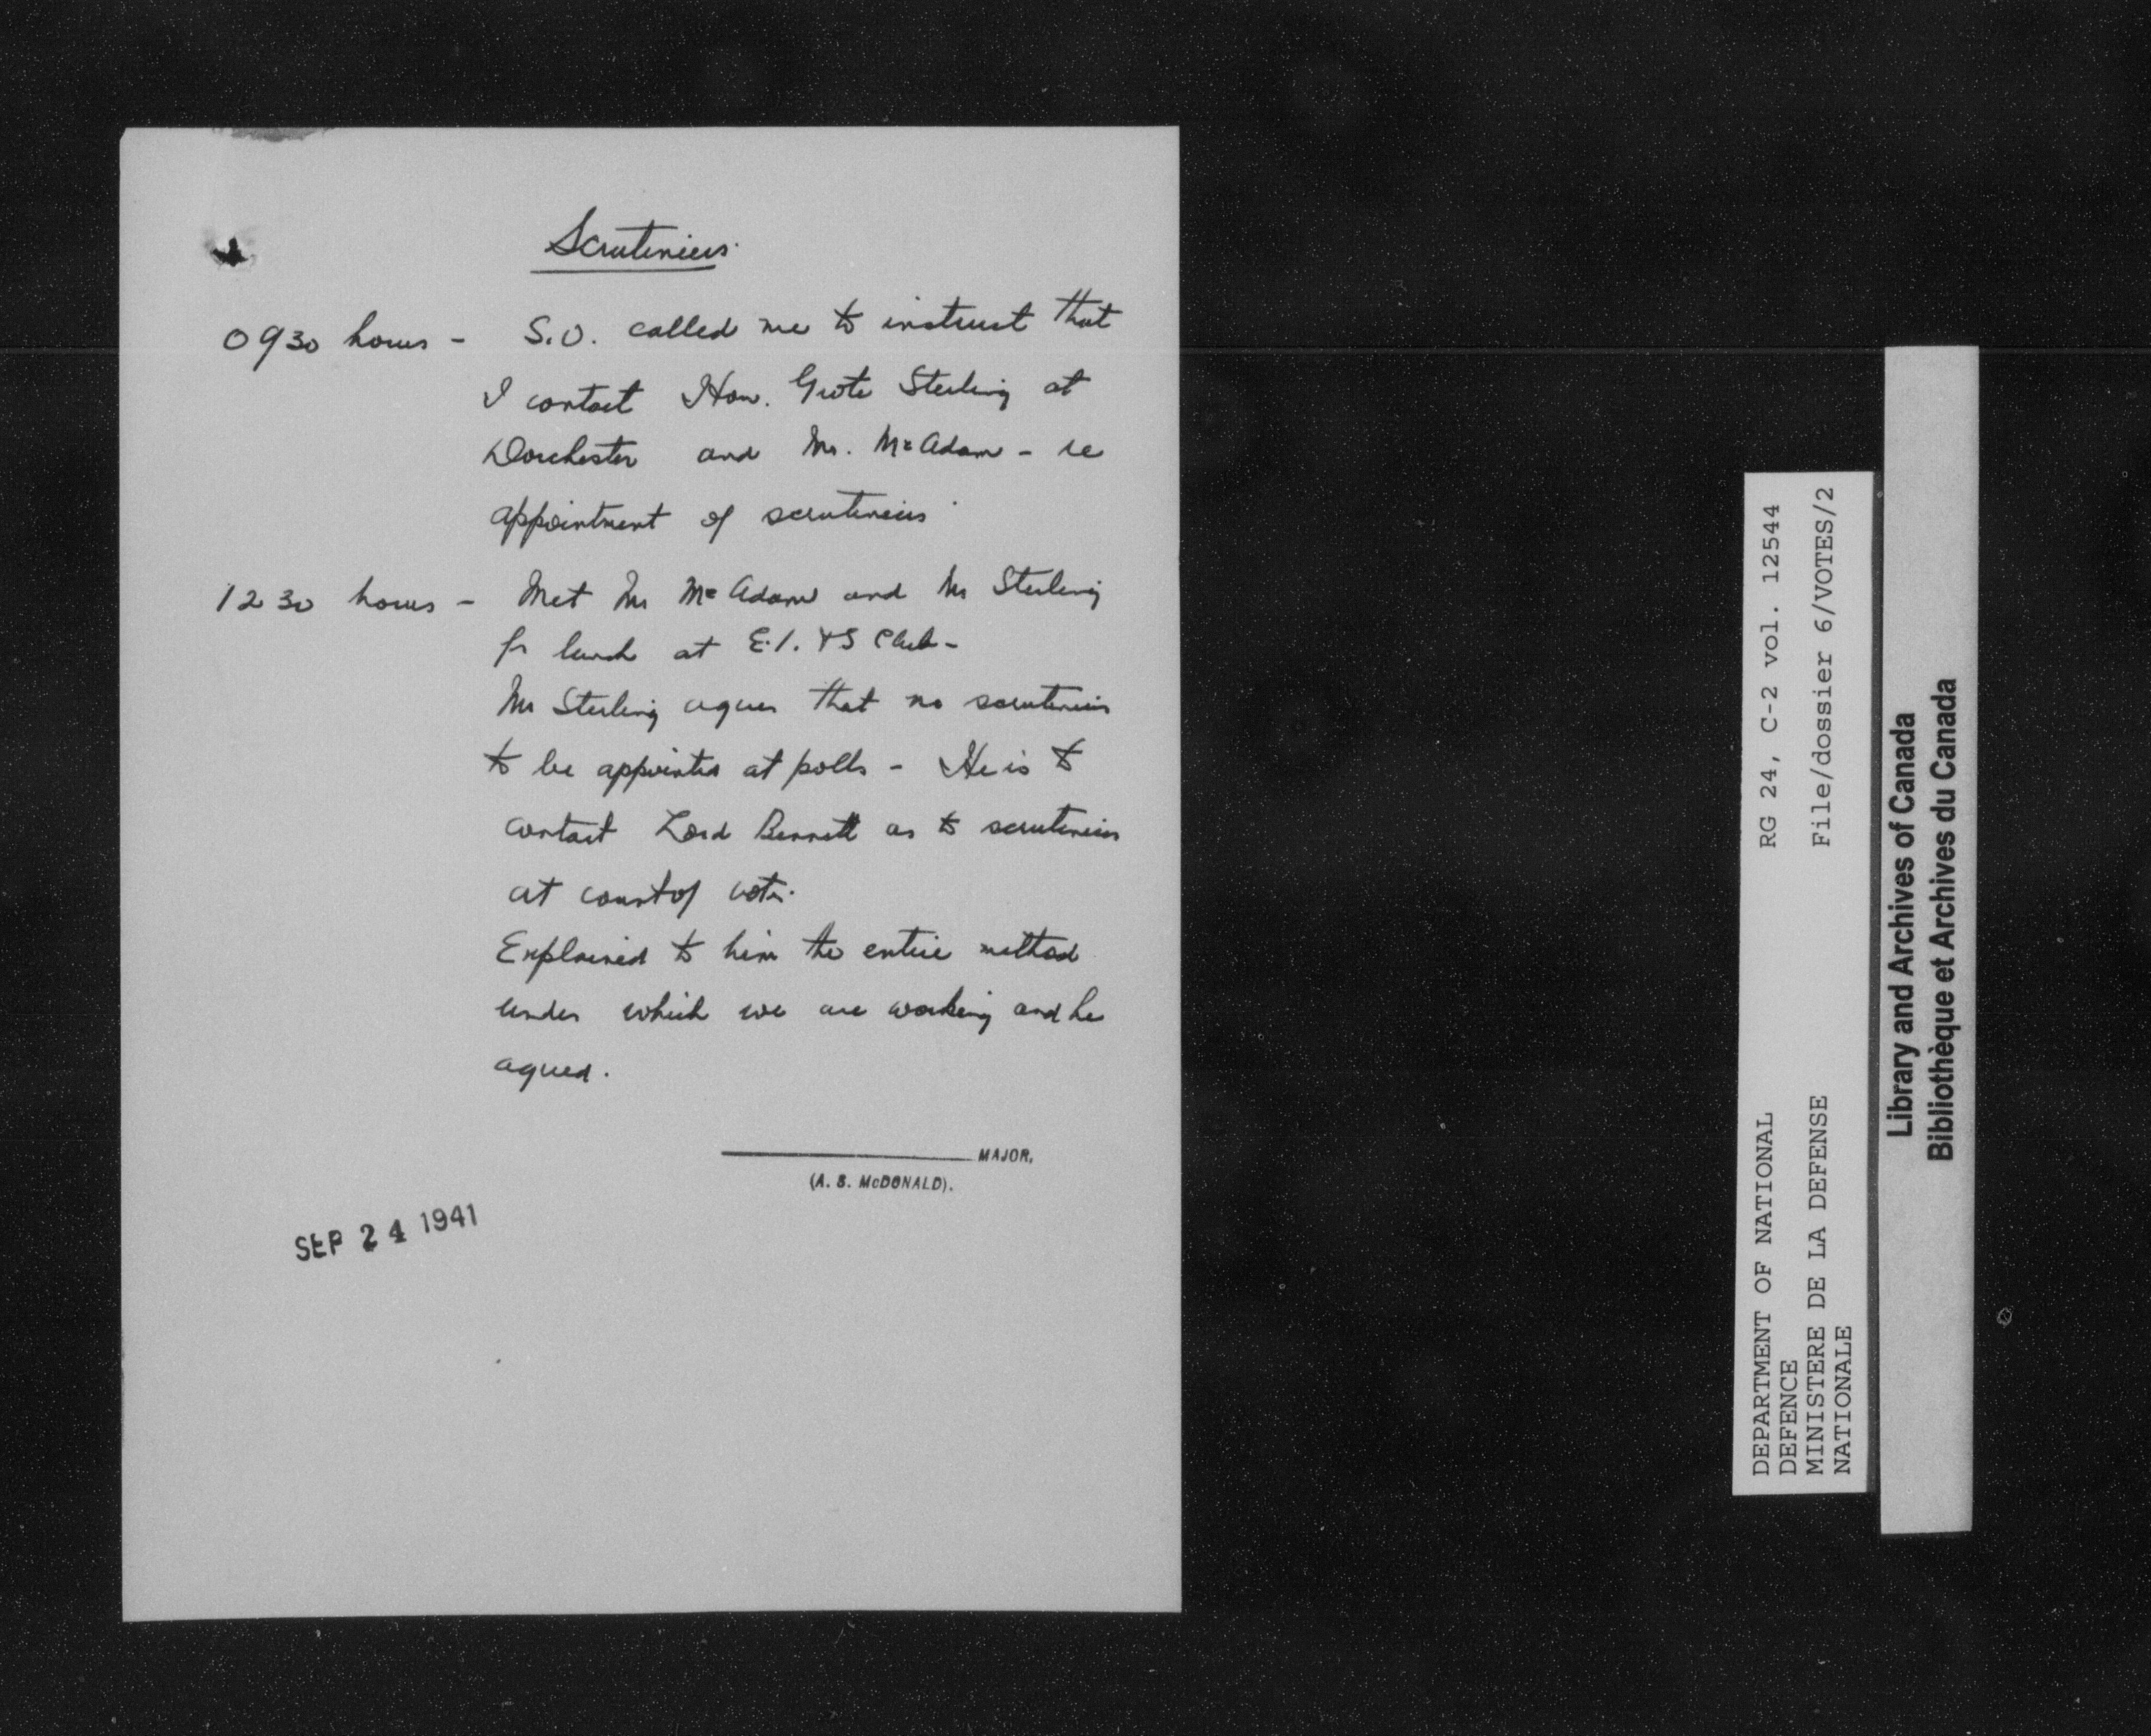 Scrutineers.
0930 hours - S.O. called me to instruct that
I contact Hon. Grote Sterling at
Dorchester and Mr. McAdam - re
appointment of scrutineers
1230 hours - Met Mr McAdam and Mr Sterling
for lunch at E.I. & S Club -
Mr Sterling agrees that no scrutineers
to be appointed at polls - He is to
contact Lord Bennett as to scrutineers
at count of vote.
Explained to him the entire method
under which we are working and he
agreed.
MAJOR.
(A. S. McDONALD).
SEP 24 1941
DEPARTMENT OF NATIONAL
DEFENCE
MINISTERE DE LA DEFENSE
NATIONALE
RG 24, C-2 vol. 12544
File/dossier 6/VOTES/2
Library and Archives of Canada
Bibliothèque et Archives du Canada